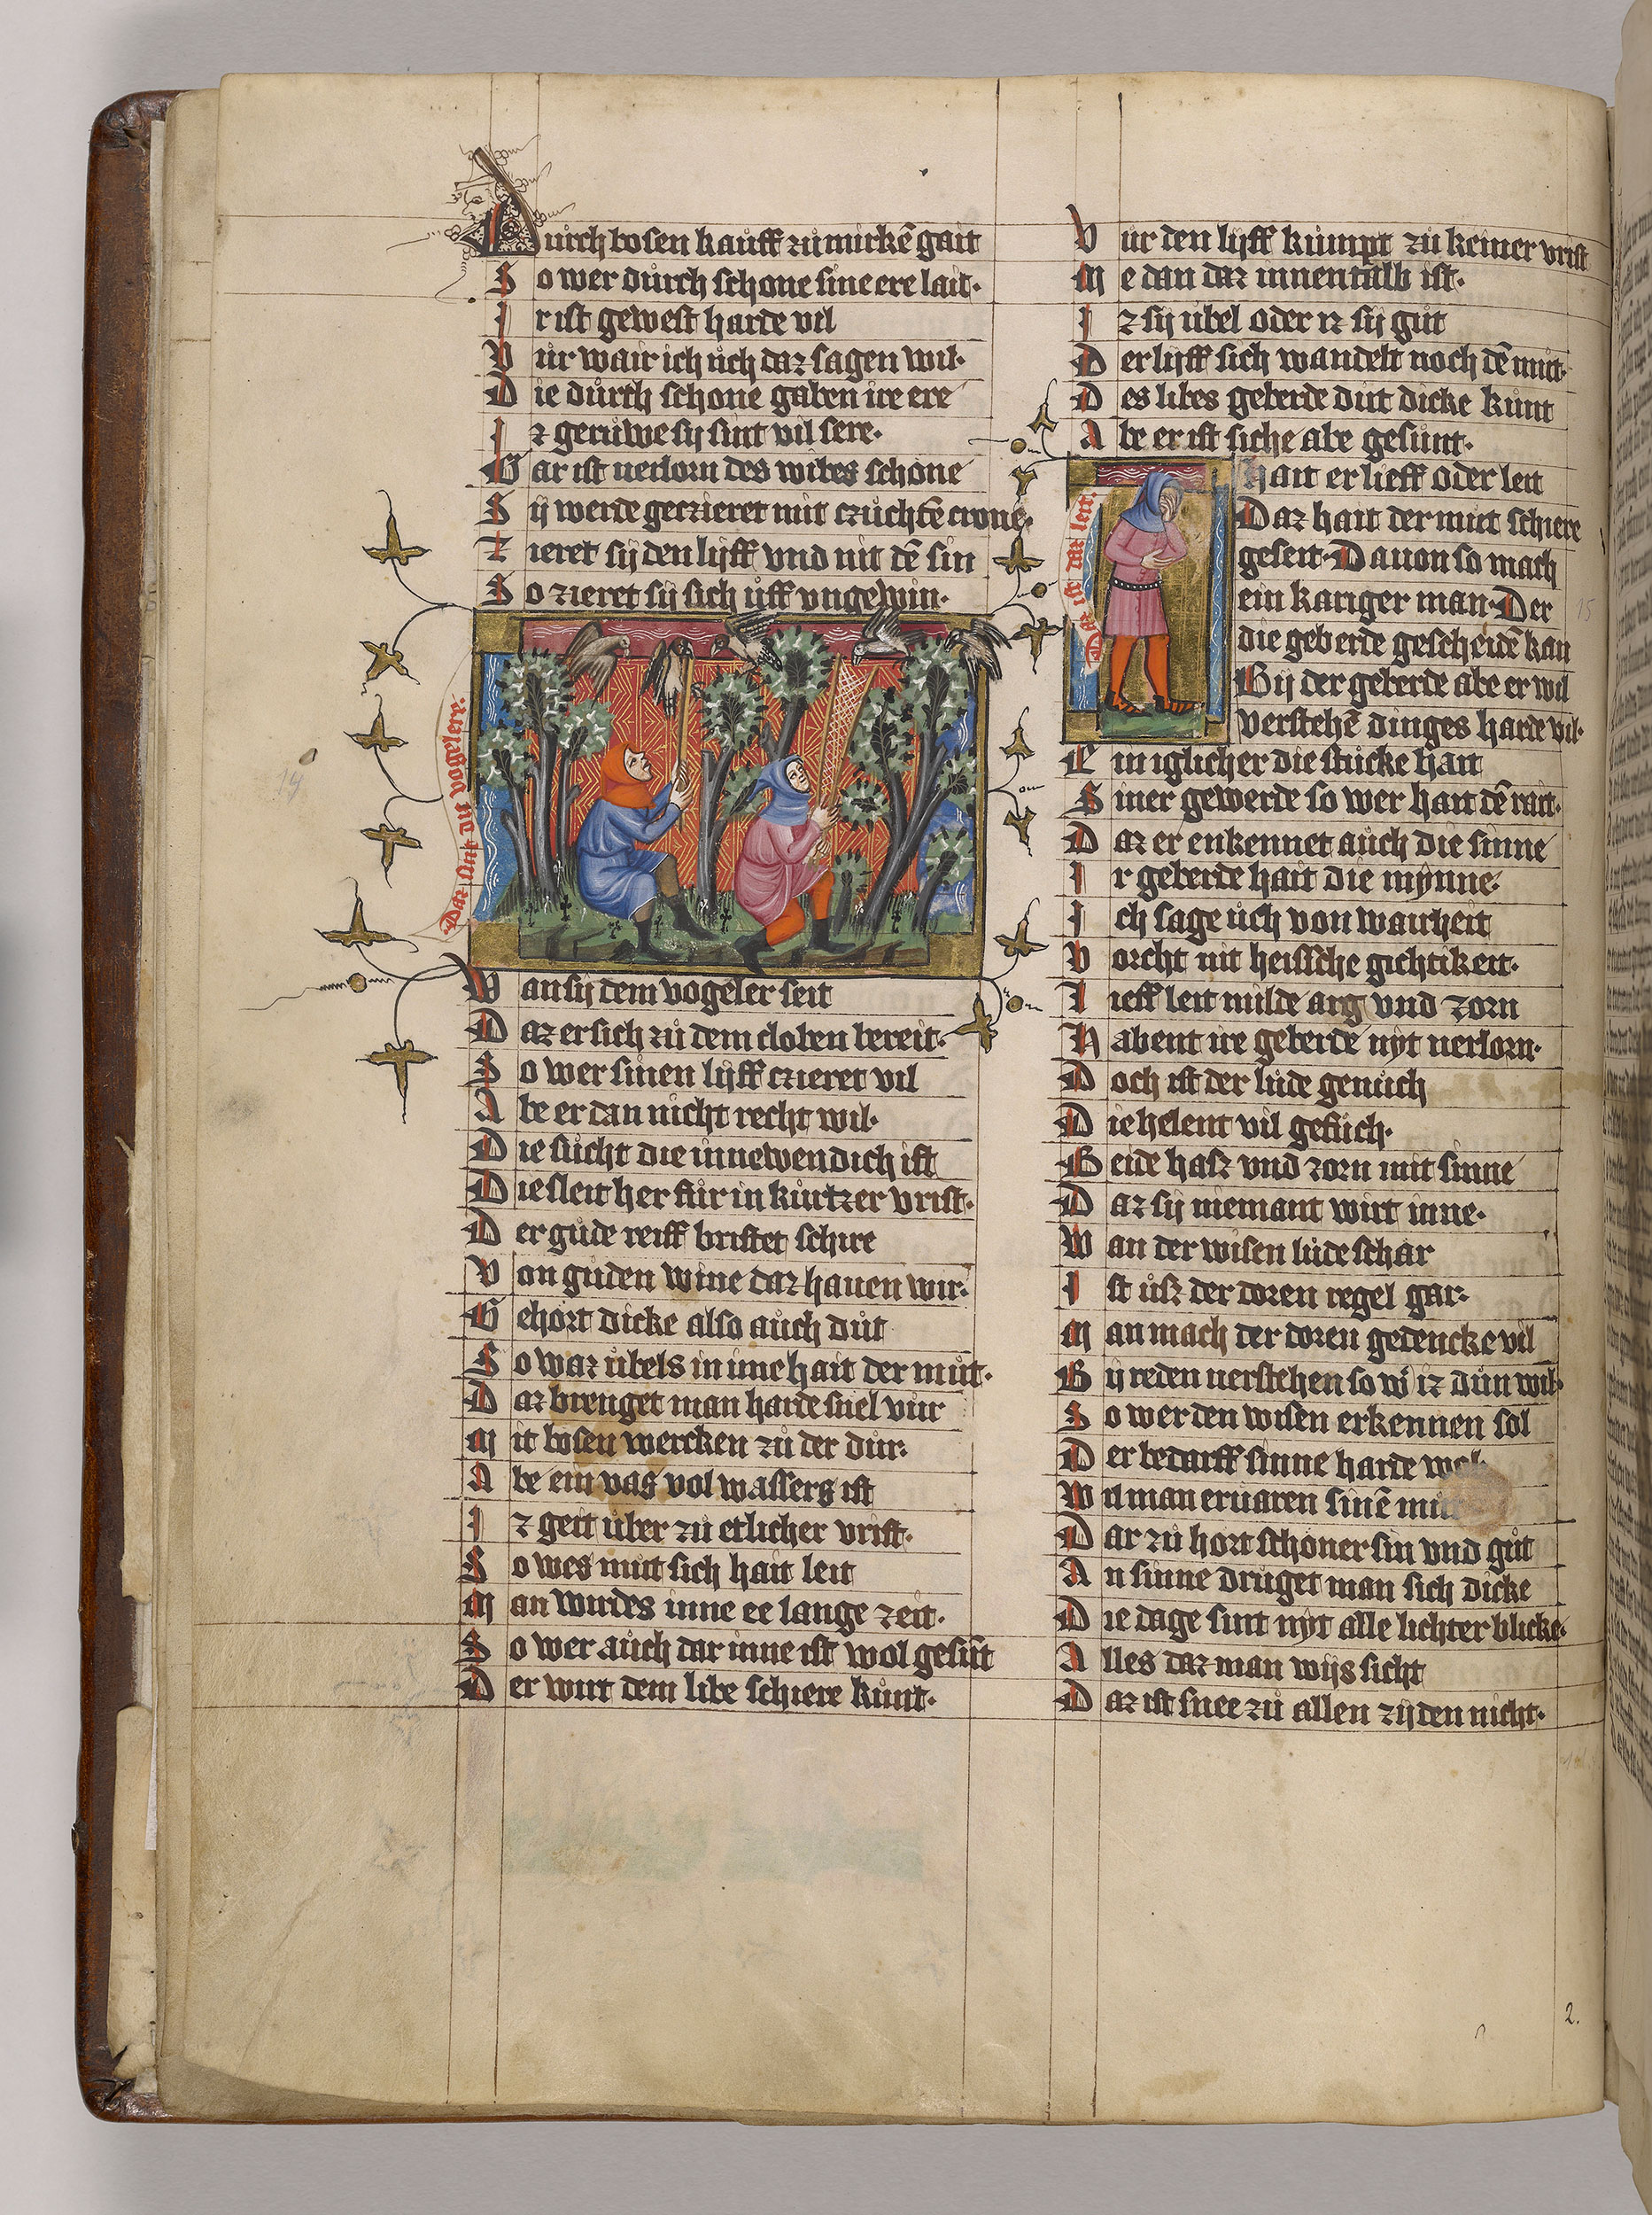 Durch bosen kauff zů mirkē gait
So wer důrch schone sine ere lait·
Ir ist gewest harde vil
Vůr wair ich ůch daz sagen wil·
Die důrch schone gaben ire ere
Iz gerůwe sij sint vil sere·
Gar ist uerlorn des wibes schone
Sij werde geczieret mit czůchtē crone·
Zieret sij den lijff vnd nit dē sin
So zieret sij sich ůff vngewin·
Daz sint di vogelere·
Wan sij dem vogeler seit
Daz er sich zů dem cloben bereit·
So wer sinen lijff czieret vil
Abe er dan nicht recht wil·
Die sůcht die innewendich ist
Die sleit her fůr in kůrtzer vrist·
Der gůde reiff bristet schire
Von gůden wine daz hauen wir·
Gehort dicke also aůch důt
So waz ůbels in ime hait der můt·
Daz brenget man harde snel vůr
Mit bosen wercken zů der důr·
Abe ein vas vol wassers ist
Iz geit ůber zů etlicher vrist·
So wes můt sich hait leit
Man wirdes inne ee lange zeit·
So wer aůch dar inne ist wol gesůnt
Der wirt dem libe schiere kůnt·
Vur den lijff kůmpt zů keiner vrist
Me dan daz innentalb ist·
Iz sij ůbel oder iz sij gůt
Der lijff sich wandelt noch dē můt·
Des libes geberde důt dicke kůnt
Abe er ist siche abe gesůnt·
Daz ist daz leit·
Hait er lieff oder leit
Daz hait der mut schiere
geseit· Dauon so mach
ein kariger man· Der
die geberde gescheidē kan
Bij der geberde abe er wil
verstehē dinges harde vil·
Ein iglicher die stůcke hait
Siner gewerde so wer hait dē rait·
Daz er enkennet aůch die sinne
Ir geberde hait die mynne·
Ich sage ůch von wairheit
Vorcht nit heissche gichtikeit·
Lieff leit milde arg vnd zorn
Habent ire geberde nyt uerlorn·
Doch ist der lůde genůch
Die helent vil gefůch·
Beide hasz vnd zorn mit sinne
Daz sij niemant wirt inne·
Wan der wisen lůde schar
Ist ůsz der doren regel gar·
Man mach der doren gedencke vil
Bij reden uerstehen so w' iz důn wil·
So wer den wisen erkennen sol
Der bedarff sinne harde wol·
Wil man eruaren sinē
Dar zů hort schoner sin vnd gůt
An sinne drůget man sich dicke
Die dage sint nyt alle lichter blicke·
Alles daz man wijs sicht
Daz ist snee zů allen zijden nicht·
14
15
2.